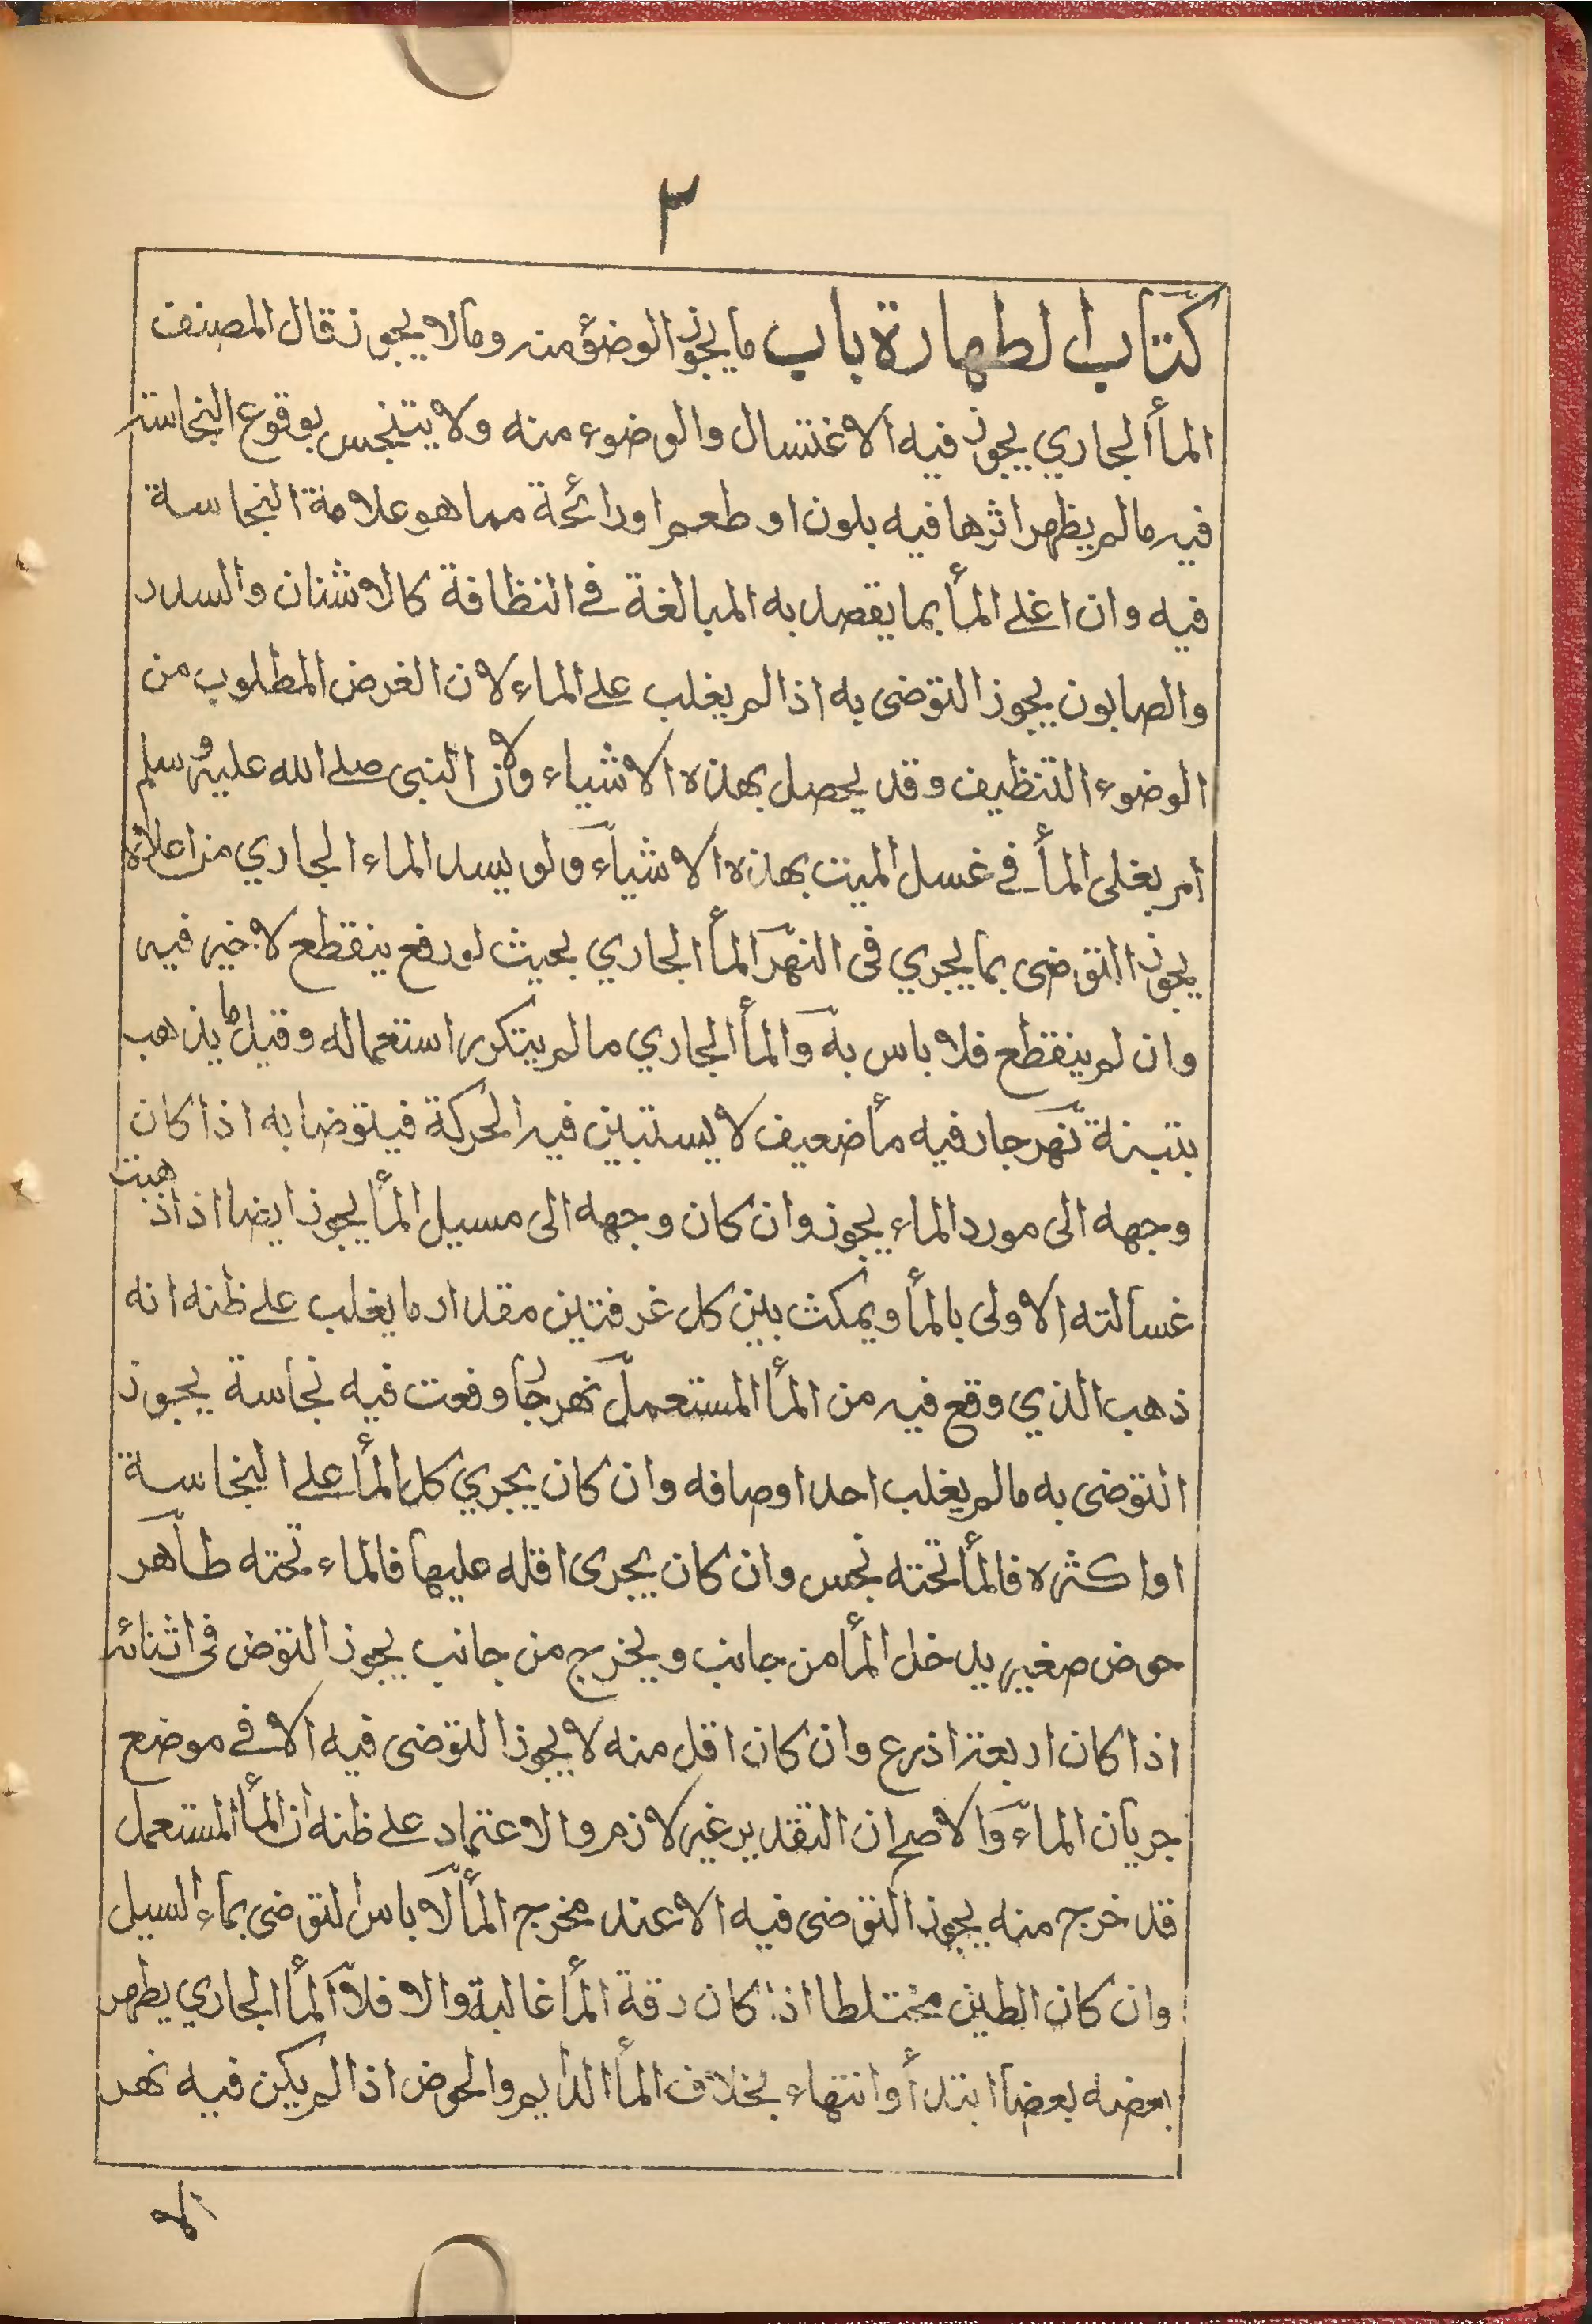 ٢
كتاب الطهارة باب ما يجوز الوضؤ منه وما لا يجوز قال المصنف
المأ الجاري يجوز فيه الاغتسال والوضوء منه ولا يتنجس بوقوع النجاسة
فيه مالم يظهر اثرها فيه بلون او طعم او رائحة مما هو علامة النجاسة
فيه وان اغلى المأ بما يقصد به المبالغة في النظافة كالاشنان والسدر
والصابون يجوز التوضى به اذا لم يغلب على الماء لان الغرض المطلوب من
الوضوء التنظيف وقد يحصل بهذه الاشياء ولان النبى صلى الله عليه وسلم
امر بغلى المأ في غسل الميت بهذه الاشيآء ولو يسد الماء الجاري من اعلاه
يجوز التوضى بما يجري فى النهر المأ الجاري بحيث لو رفع ينقطع لا خير فيه
وان لم ينقطع فلا باس به والمأ الجاري مالم يتكرر استعماله وقيل ما يذهب
بتبنة نهر جار فيه مأ ضعيف لا يستبين فيه الحركة فيتوضا به اذا كان
وجهه الى مورد الماء يجوز وان كان وجهه الى مسيل المأ يجوز ايضا اذا ذهبت
غسالته الاولى بالمأ ويمكث بين كل غرفتين مقدار ما يغلب على ظنه انه
ذهب الذي وقع فيه من المأ المستعمل نهر جار وقعت فيه نجاسة يجوز
التوضى به مالم يغلب احد اوصافه وان كان يجري كل المأ على النجاسة
او اكثره فالمأ تحته نجس وان كان يجرى اقله عليها فالماء تحته طاهر
حوض صغير يدخل المأ من جانب ويخرج من جانب يجوز التوض فى اثنائه
اذا كان اربعة اذرع وان كان اقل منه لا يجوز التوضى فيه الا في موضع
جريان المآء والاصح ان التقدير غير لازم والاعتماد على ظنه ان المأ المستعمل
قد خرج منه يجوز التوضى فيه الا عند مخرج المأ لا باس التوضى بماء السيل
وان كان الطين مختلطا اذا كان رقة المأ غالبة والا فلا المأ الجاري يطهر
بعضه بعضا ابتدأ وانتهاء بخلاف المأ الدايم والحوض اذا لم يكن فيه نهر
الا